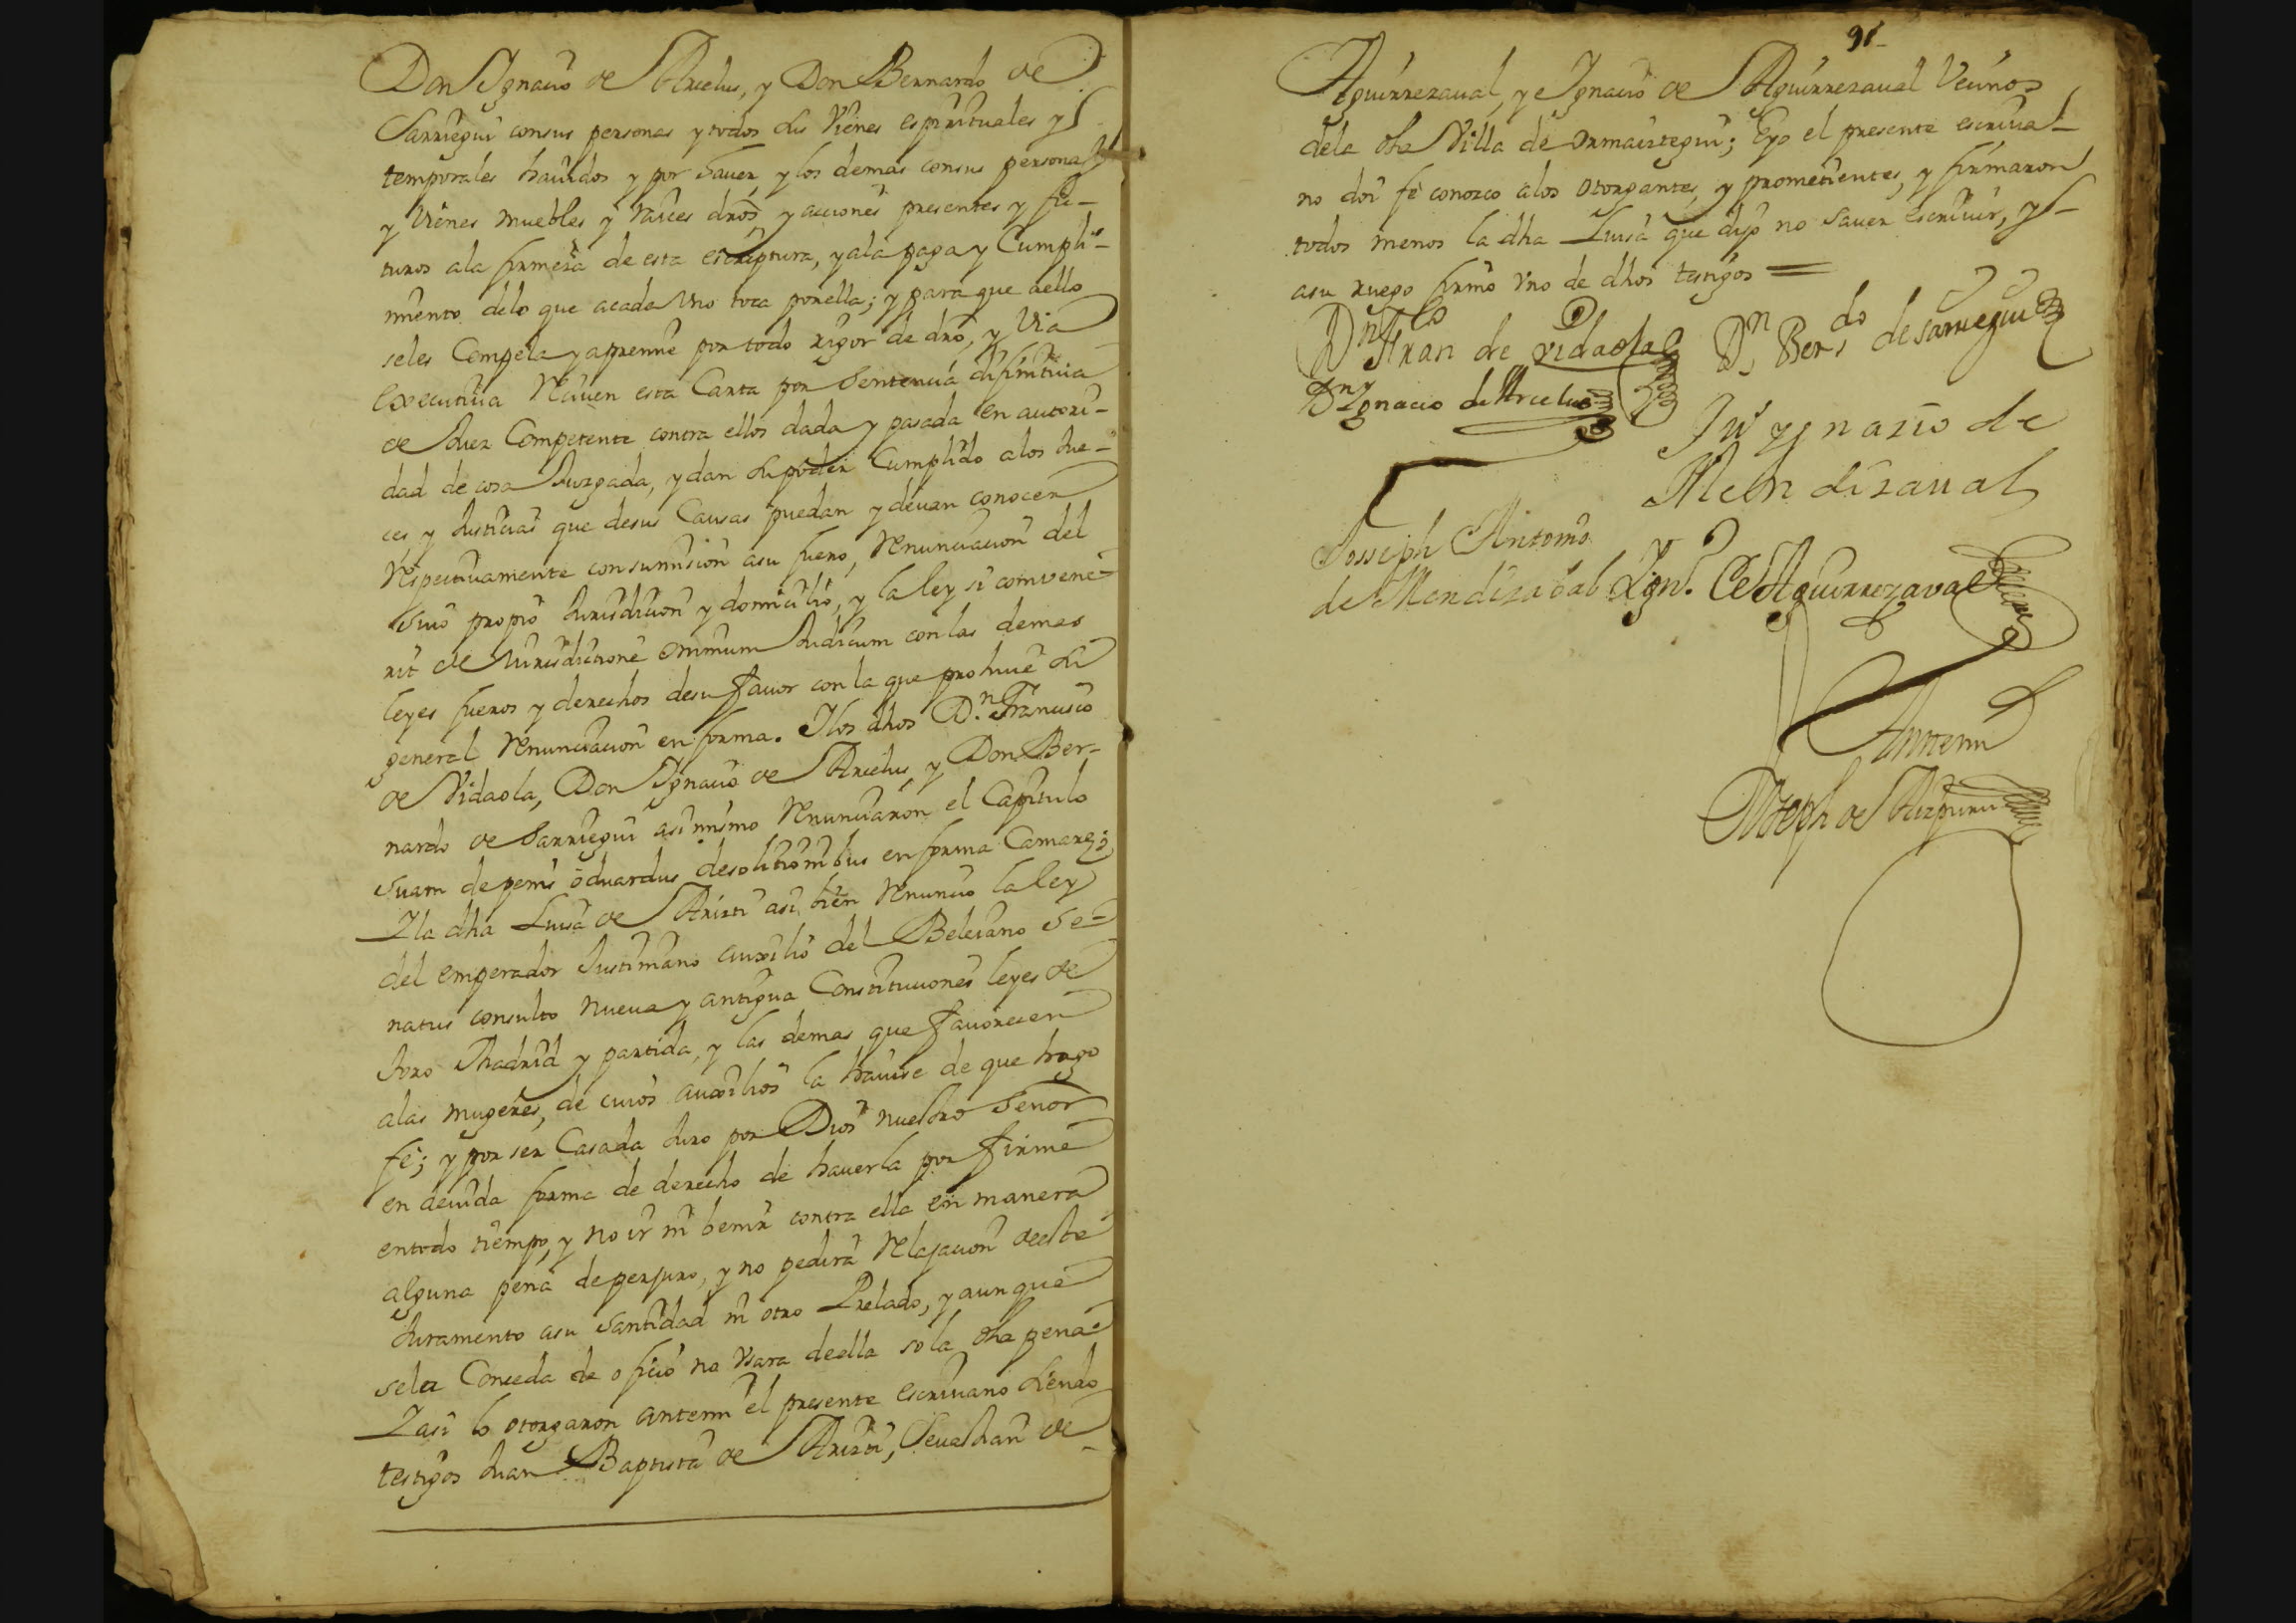 Don Ygnacio de Arcelus, y Don Bernardo de
Sarriegui consus personas y todos sus Vienes espirituales y
temporales hauidos y por hauer y los demas consus personas
y Vienes muebles y raices dros, y acciones presentes y fu-
turos ala firmeza de esta escriptura, y ala paga y Cumpli-
miento delo que acada Vno toca por ella; y para que aello
seles Compela y apremie por todo rigor de dro, y Via
executiua Reciuen esta Carta por Sentencia difinitiua
de Juez Competente contra ellos dada y pasada en autori-
dad de cosa Juzgada, y dan su poder Cumplido alos Jue-
ces y Justicias que desus Causas puedan y deuan conocer
Respectiuamente consumision asu fuero, Renunciacion del
suio propio Jurisdicion y domicilio, y la ley si convene-
rit de Jurisdictione omnium Judicum con las demas
leyes fueros y derechos desu fauor con la que prohiue la
general Renunciacion en forma. Y los dhos D.n Francisco
de Vidaola, Don Ygnacio de Arcelus, y Don Ber-
nardo de Sarriegui asi mismo Renunciaron el Capitulo
suam de penis oduardus desolutionibus en forma Camare;
Y la dha Luisa de Arizti asi bien Renuncio la ley
del emperador Justiniano auxilio del Beleiano Se-
natus consulto nueua y antigua Constituciones leyes de
toro Madrid y partida, y las demas que fauorecen
alas mugeres, de cuios auxilios la hauise de que hago
fe; y por ser Casada Juro por Dios nuestro Señor
en deuida forma de derecho de hauerla por firme
entodo tiempo, y no ir ni benir contra ella en manera
alguna pena deperjuro, y no pedira Relajacion deeste
Juramento asu Santidad ni otro Prelado, y aunque
sela Conceda de oficio no Vsara deella so la dha pena
Y asi lo otorgaron antemi el presente escriuano siendo
testigos Juan Baptista de Arizti, Seuastian de
91
Aguirrezaual, y Ygnacio de Aguirrezaual Vecinos
dela dha Villa de Ormaiztegui; E yo el presente escriua-
no doi fe conozco alos otorgantes, y prometientes, y firmaron
todos menos la dha Luisa que dijo no sauer escriuir, y
asu ruego firmo Vno de dhos testigos =
Dn Fran.co de Vidaola D.n Ber.do de Sarriegui
Dn Ygnacio de Arcelus
Ju yg nazio de
Men dizaual
Josseph Antonio
de Mendizabal Ygn.o de Aguirrezaval
Antemi
Joseph de Aizpuru